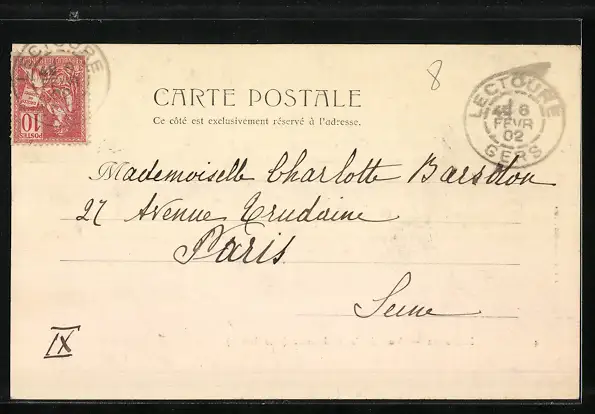 LECTOURE
10
8
CARTE POSTALE
Ce côté est exclusivement réservé à l'adresse.
LECTOURE
6
FEVR
02
GERS
Mademoiselle Charlotte
27 Avenue Trudaine
Paris
Seine
IX